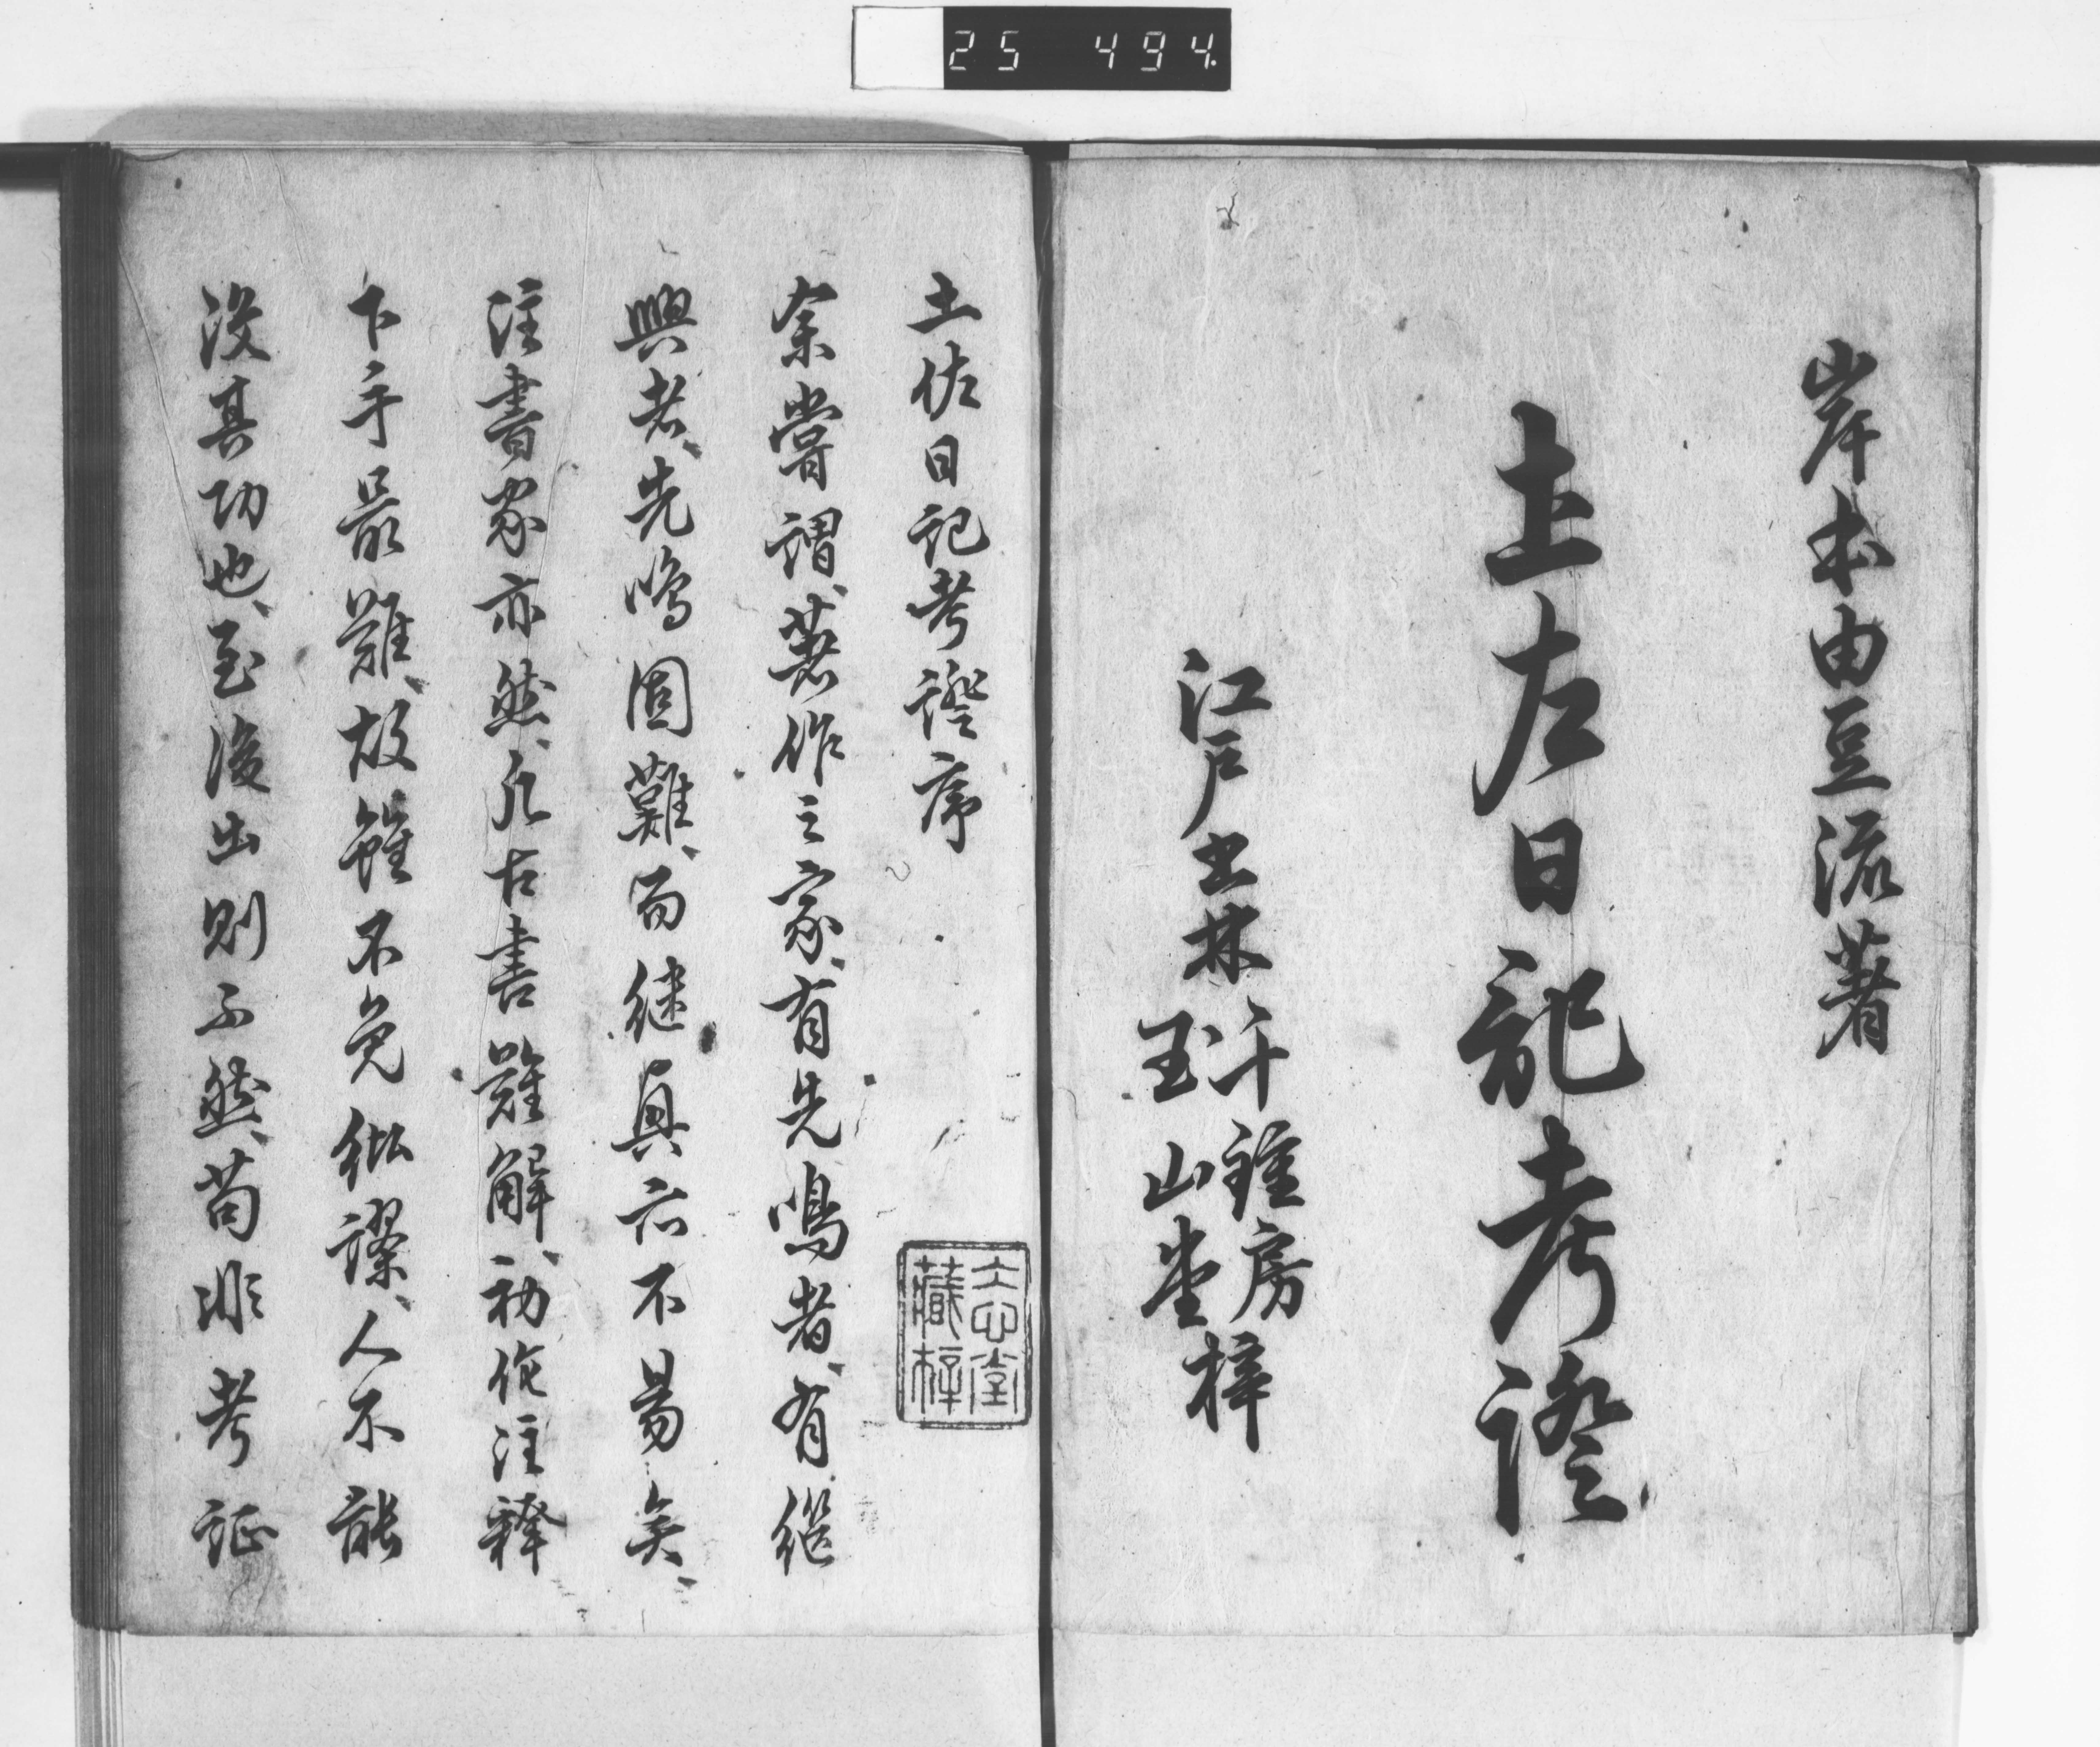 25 494
岸本由豆流著
土左日記考證
江戸書林
千鍾房
玉山堂
梓
土佐日記考證序
余嘗謂、著作之家、有先鳴者、有継
興者、先鳴固難、而継興亦不易矣、
注書家亦然、凡古書難解、初作注釋
下手最難、故雖不免紕謬、人不能
没其功也、至後出則不然、苟非考証
志堂
藏梓